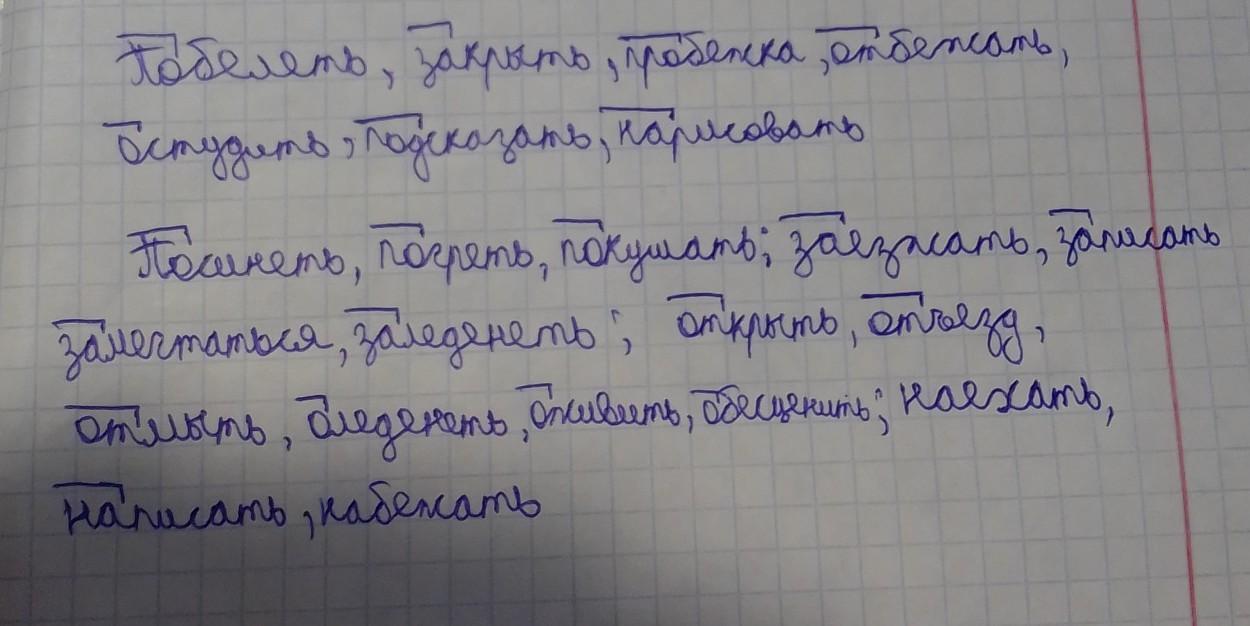 Побелеть, закрыть, пробежка, отбежать,
остудить, подсказать, нарисовать
Посинеть, погреть, покушать; заезжать, записать
замечтаться, заледенеть; открыть, отъезд,
отмыть, оледенеть, оживить, обесценить; наехать,
написать, набежать